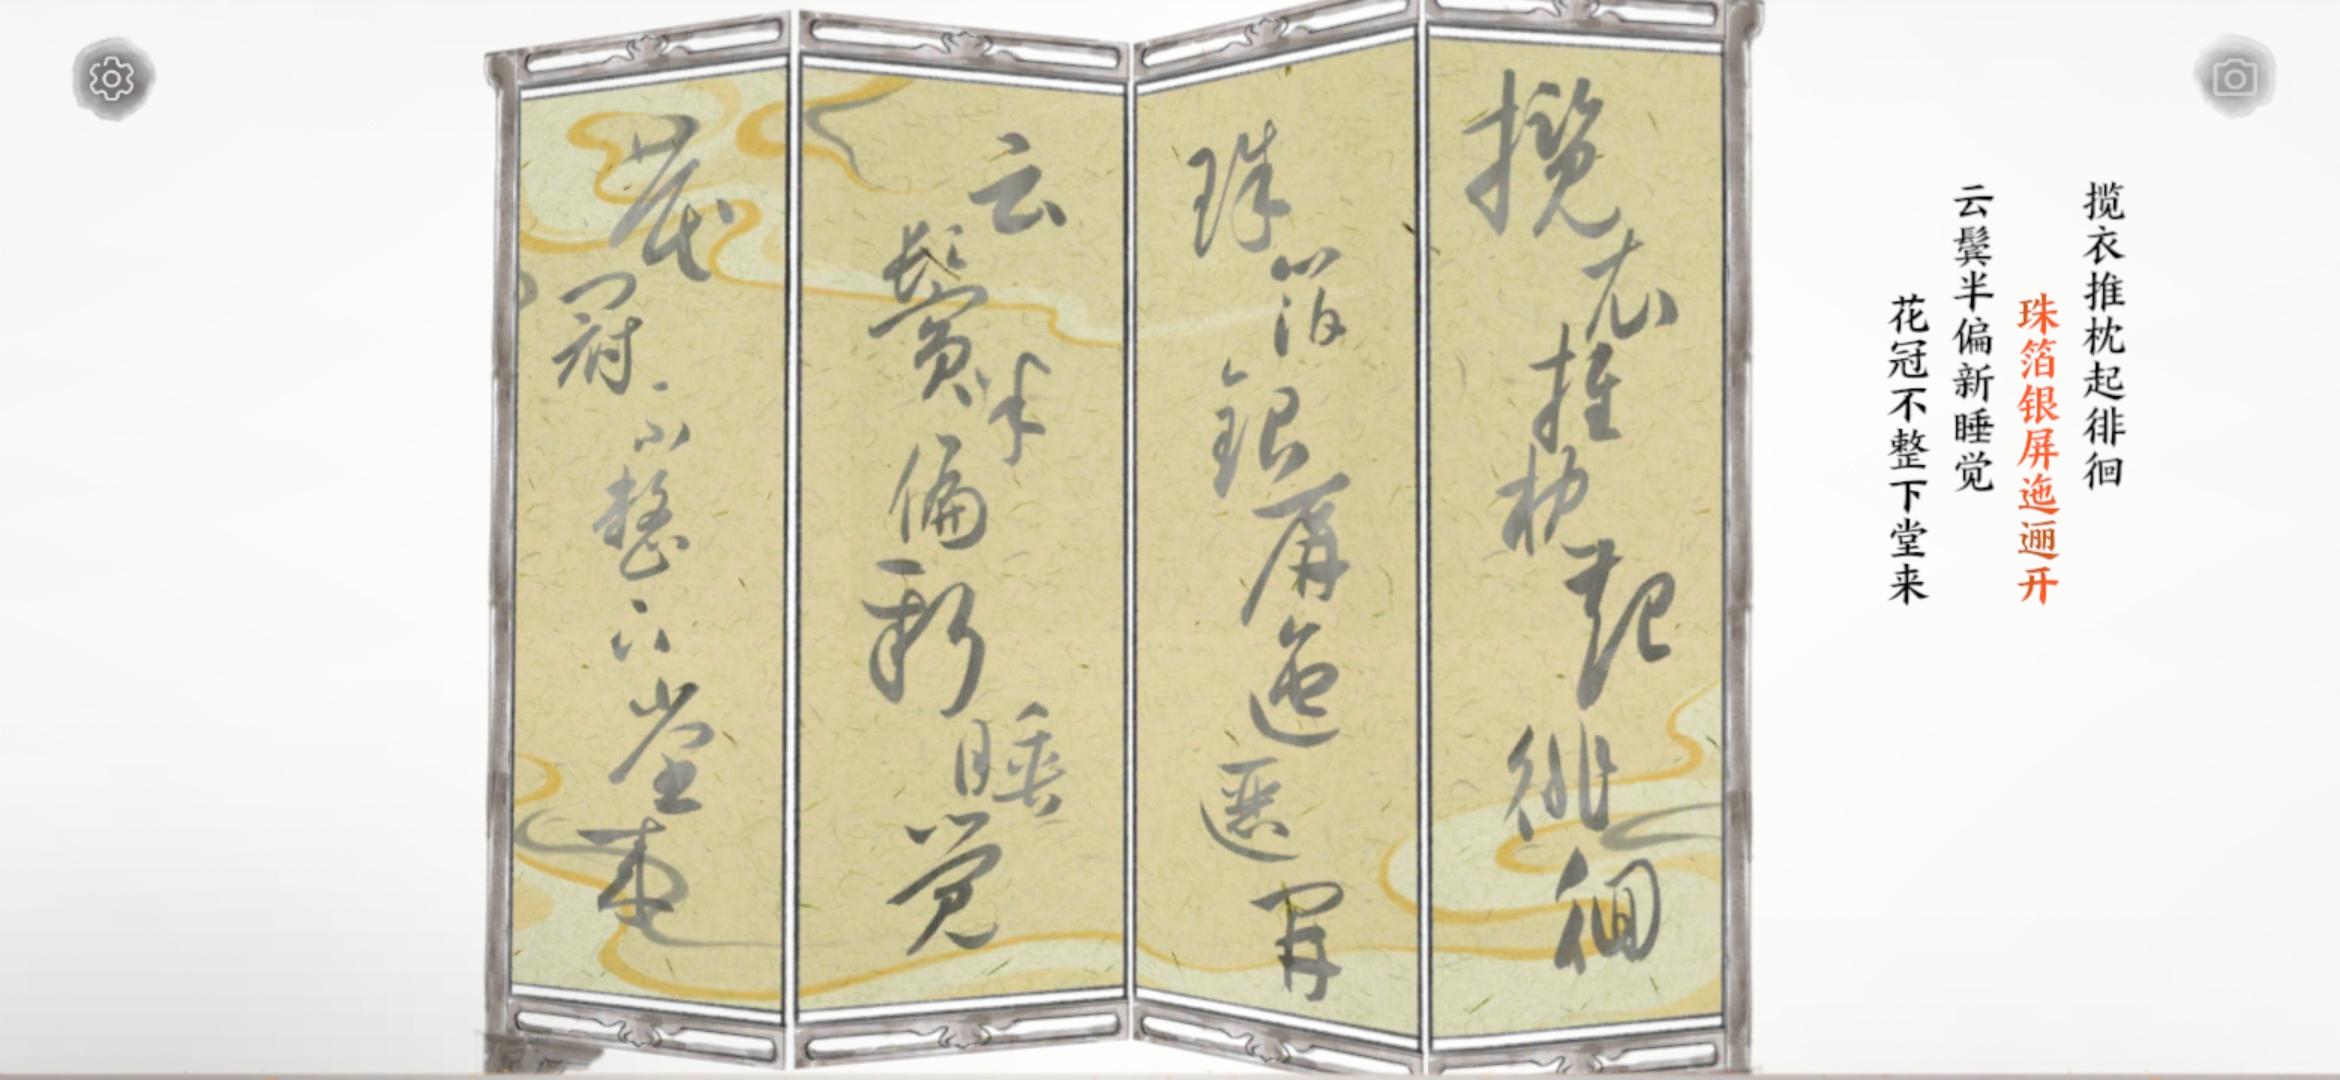 揽衣推枕起徘徊
珠箔银屏迤逦开
云鬓半偏新睡觉
花冠不整下堂来
揽衣推枕起徘徊
珠箔银屏迤逦开
云鬓半偏新睡觉
花冠不整下堂来